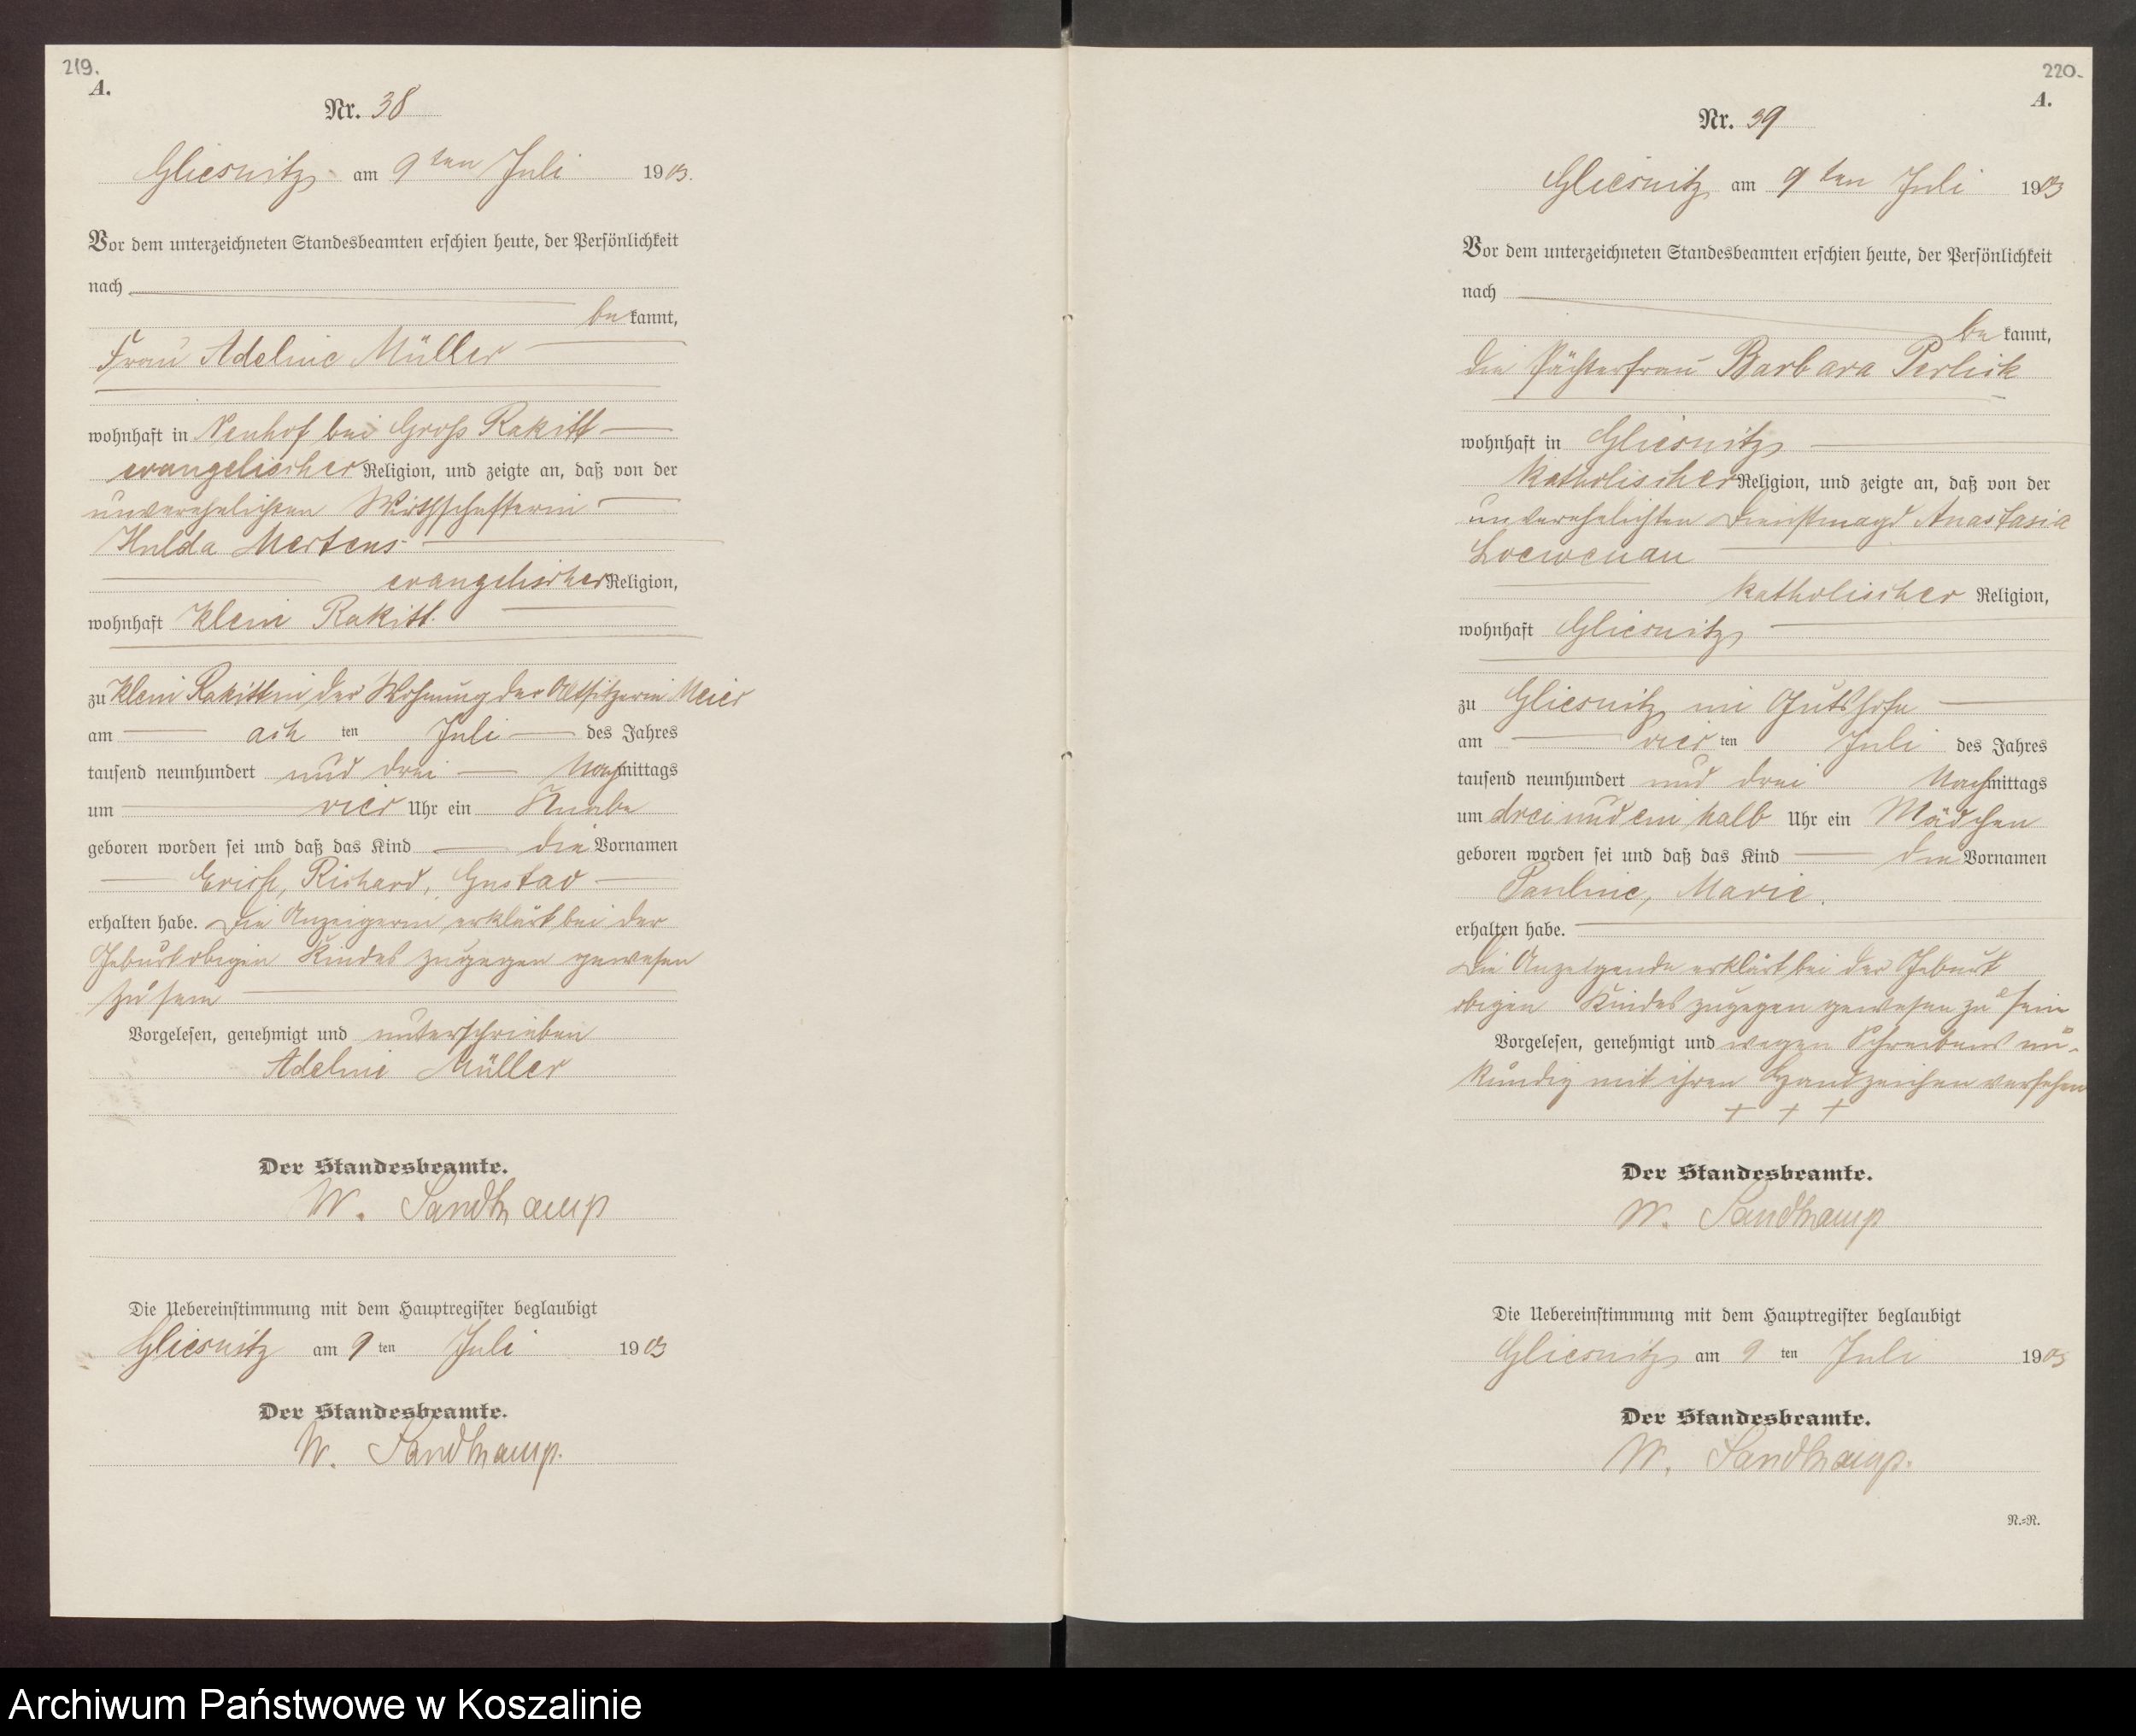 219.
A.
Nr. 38
Gliesnitz am 9 ten Juli 1903.
Vor dem unterzeichneten Standesbeamten erschien heute, der Persönlichkeit
nach
be kannt,
Frau Adeline Müller
wohnhaft in Neuhof bei Gross Rakitt
evangelischer Religion, und zeigte an, daß von der
unverehelichten Wirthschafterin
Hulda Mertens
evangelischer Religion,
wohnhaft Klein Rakitt.
zu Klein Rakitt in der Wohnung der Altsitzerin Meier
am ach ten Juli des Jahres
tausend neunhundert und drei Nachmittags
um vier Uhr ein Knabe
geboren worden sei und daß das Kind die Vornamen
Erich, Richard, Gustav
erhalten habe. Die Anzeigerin erklärt bei der
Geburt obigen Kindes zugegen gewesen
zu sein
Vorgelesen, genehmigt und unterschrieben
Adeline Müller
Der Standesbeamte.
W. Sandkamp
Die Uebereinstimmung mit dem Hauptregister beglaubigt
Gliesnitz am 9 ten Juli 1903
Der Standesbeamte.
W. Sandkamp.
220.
A.
Nr. 39
Gliesnitz am 9 ten Juli 1903
Vor dem unterzeichneten Standesbeamten erschien heute, der Persönlichkeit
nach
be kannt,
die Pächterfrau Barbara Perlick
wohnhaft in Gliesnitz
katholischer Religion, und zeigte an, daß von der
unverehelichten Dienstmagd Anastasia
Loewenau
katholischer Religion,
wohnhaft Gliesnitz
zu Gliesnitz im Gutshofe
am vier ten Juli des Jahres
tausend neunhundert und drei Nachmittags
um drei und ein halb Uhr ein Mädchen
geboren worden sei und daß das Kind die Vornamen
Pauline, Marie.
erhalten habe.
Die Anzeigende erklärt bei der Geburt
obigen Kindes zugegen gewesen zu sein
Vorgelesen, genehmigt und wegen Schreibens un-
kundig mit ihren Handzeichen versehen
+ + +
Der Standesbeamte.
W. Sandkamp
Die Uebereinstimmung mit dem Hauptregister beglaubigt
Gliesnitz am 9 ten Juli 1903
Der Standesbeamte.
W. Sandkamp.
R.=R.
Archiwum Państwowe w Koszalinie